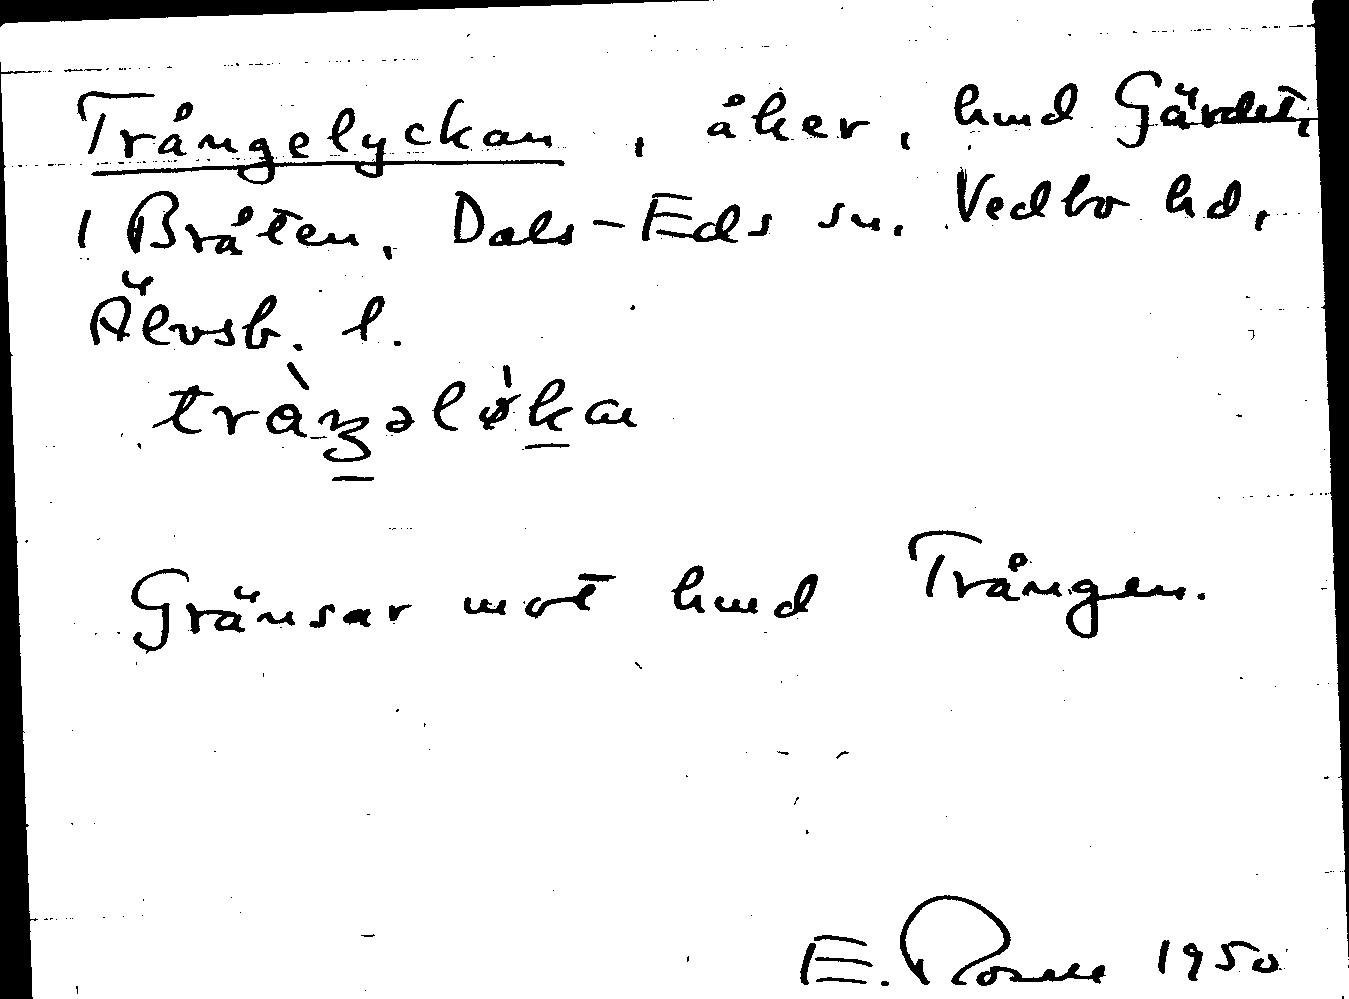 Trångelyckan, åker, hmd Gärdet,
1 Bråten, Dals-Eds sn. Vedbo hd,
Älvsb. l.
Gränsar mot hmd Trången.
E. Rosell 1950